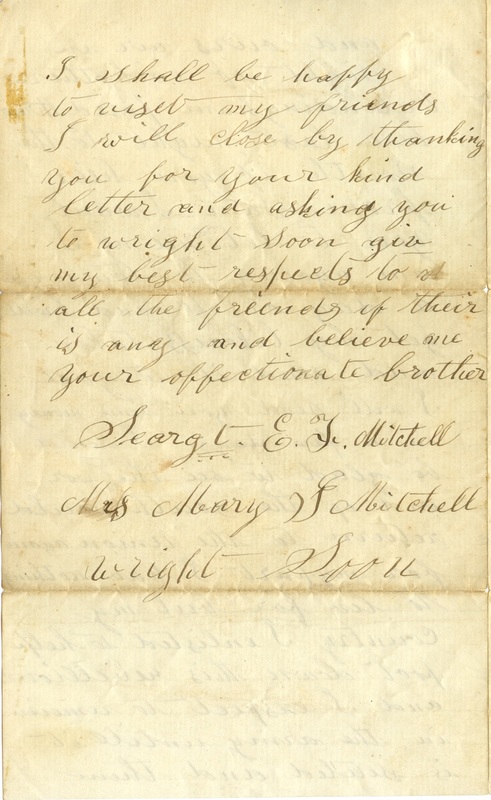 I shall be happy
to viset my friends
I will close by thanking
you for your kind
letter and asking you
to wright soon giv
my best respects to
all the friends if their
is any and believe me
your affectionate brother
Seargt. E. F. Mitchell
Mrs Mary J Mitchell
wright Soon